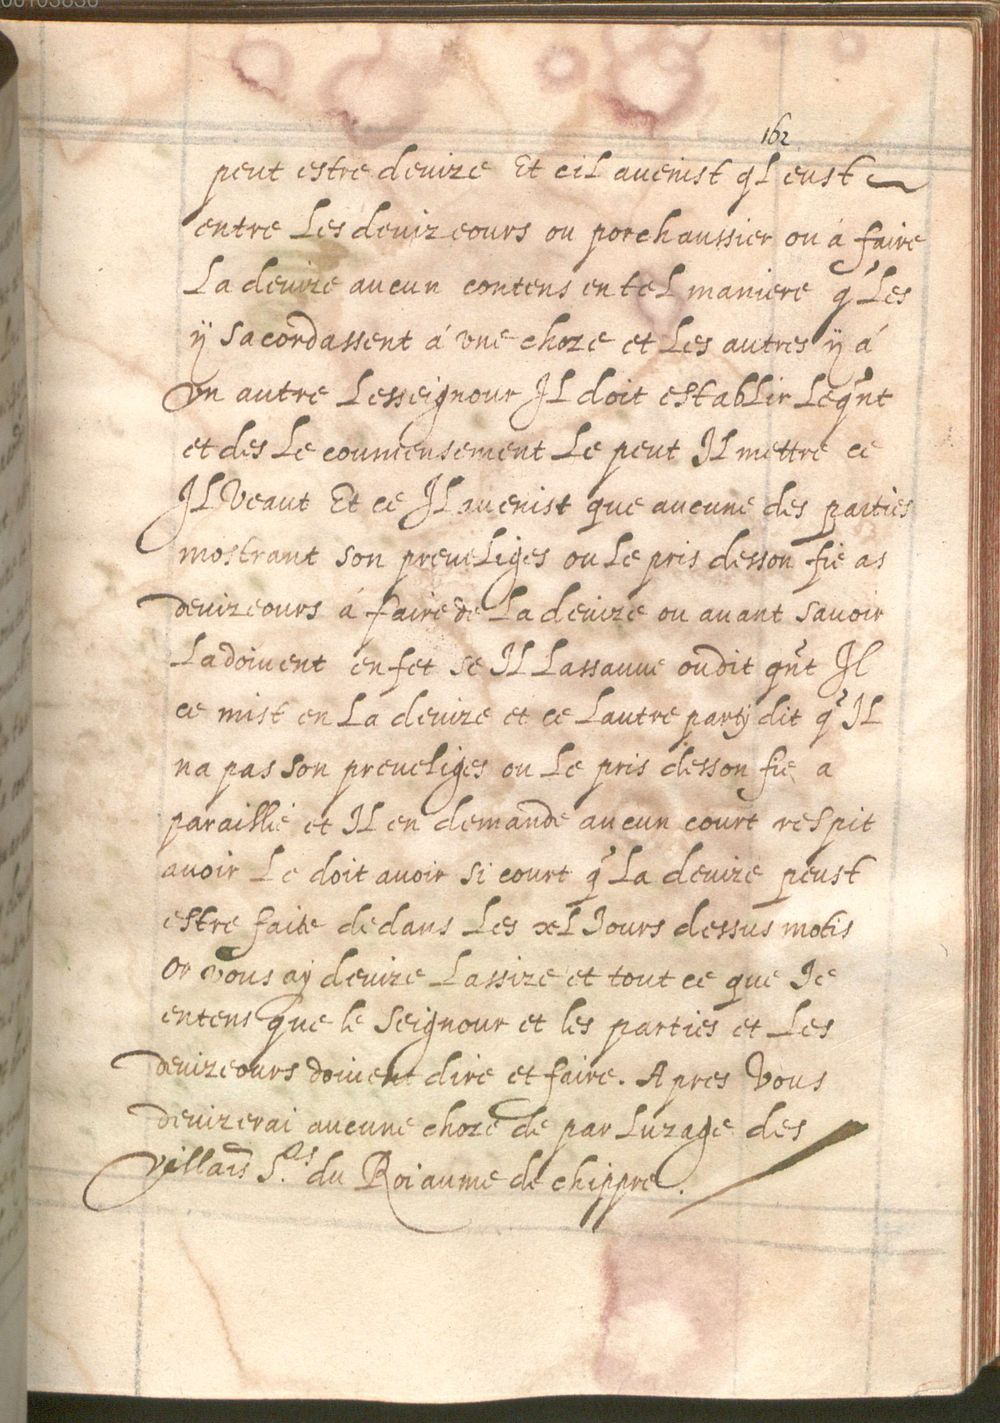 00103836
162
peut estre devize Et cil avenist ql eust
entre Les devizeours ou porchaussier ou á faire
La devize aucun contens en tel maniere q̃ Les
ÿ sacordassent á vne choze et Les autres ÿ á
vn autre Lesseignour Il doit establir Leq̃nt
et des Le coumensement Le peut Il mettre ce
Il Veaut Et ce Il avenist que aucune des parties
mostrant son preveliges ou Le pris desson fié as
devizeours á faire de La devize ou avant savoir
La doivent en fet se Il Lassauve ou dit qñt Il
ce mist en La devize et ce Lautre party dit q̃ Il
na pas son preveliges ou Le pris desson fie a
paraillié et Il en demande aucun court respit
avoir Le doit avoir si court q̃ La devize peust
estre faite dedans Les xL Jours dessus motis
Or vous aÿ devize Lassize et tout ce que Je
entens que le Seignour et les parties et Les
devizeours doivent dire et faire. Apres Vous
devizerai aucune choze de par Luzage des
villains S.rs du Roiaume de chippre.